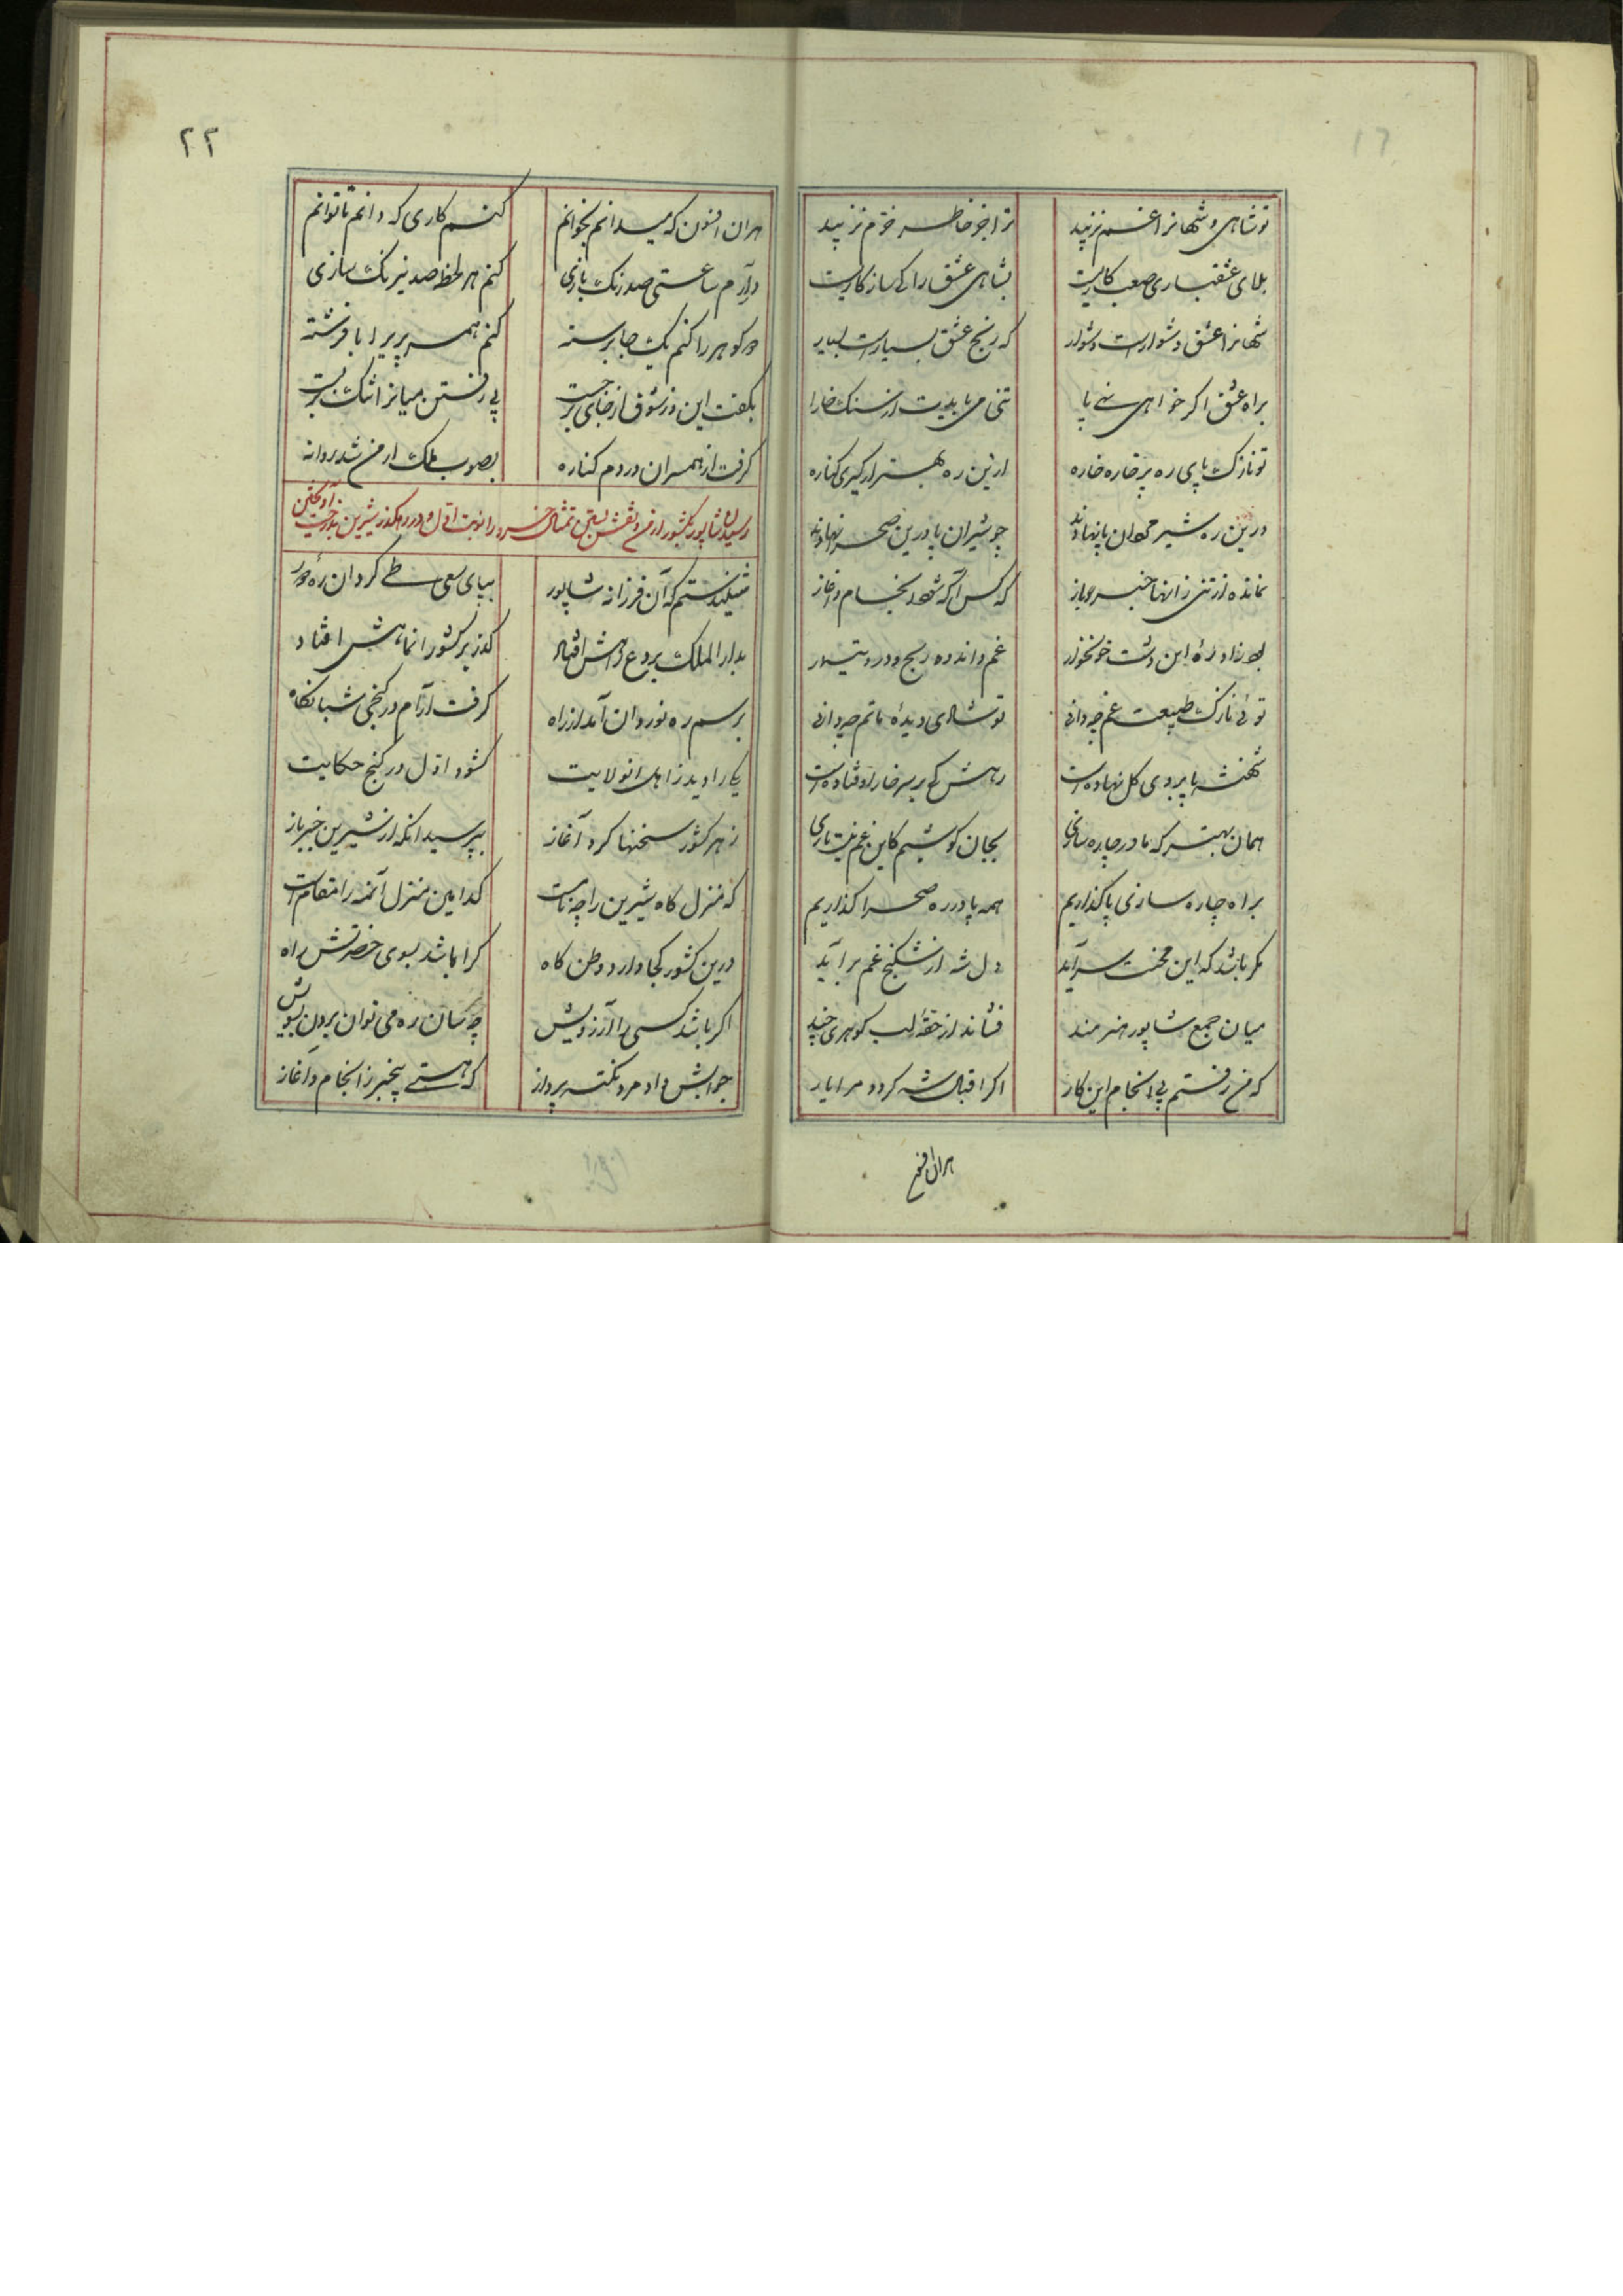 تو شاهی و شهانرا غم نزیبد
ترا جز خاطر خرم نزیبد
بلای عشقبازی صعب کاریست
بشاهی عشق را کی سازکاریست
شهانرا عشق دشوارست دشوار
که رنج عشق بسیارست بسیار
براه عشق اکر خواهی نهی پا
تنی می بایدت از سنک خارا
تو نازک پای ره پر خاره خاره
ازین ره بهتر ار کیری کناره
درین ره شیر مردان پا نهادند
چو شیران پا درین صحرا نهادند
نمانده از تنی زانها خبر باز
که کس آکه شود ز انجام و آغاز
بود زاد ره این دشت خونخوار
غم و اندوه و رنج و درد و تیمار
توئی نازک طبیعت غم چه دانی
تو شادی دیدهٔ ماتم چه دانی
شهنشه پا بروی کل نهاده است
رهش کی بر سر خار اوفتاده است
همان بهتر که ما در چاره سازی
بجان کوشیم کاین غم نیست بازی
براه چاره سازی پا کذاریم
همه پا در ره صحرا کذاریم
مکر باشد که این محنت سر آید
دل شه از شکنج غم برآید
میان جمع شاپور هنرمند
فشاند از حقهٔ لب کوهری چند
که من رفتم پی انجام این کار
اکر اقبال شه کردد مرا یار
هران افسون
۲۲
هران افسون که میدانم بخوانم
کنم کاری که دانم تا توانم
درآرم ساعتی صد رنک بازی
کنم هر لحظه صد نیرنک سازی
دو کوهر را کنم یک جا برسته
کنم همسر پریرا با فرشته
بکفت این وز شوق از جای برجست
پی رفتن میانرا تنک بربست
کرفت از همسران در دم کناره
بصوب ملک ارمن شد روانه
رسیدن شاپور بکشور ارمن و نقش بستن تمثال خسرو را نوبت اول و در رهکذر شیرین بدرخت آویختن
چنین دانستم که آن فرزانه شاپور
بپای سعی طی کرد آن ره دور
بدار الملک بردع راهش افتاد
کذر بر کشور انماهش افتاد
برسم ره نوردان آمد از راه
کرفت آرام در کنجی شبانکاه
یکی را دید ز اهل انولایت
کشود اول در کنج حکایت
ز هر کشور سخنها کرد آغاز
بپرسید انکه از شیرین خبر باز
که منزل کاه شیرین را چه نامست
کدامین منزل آنمه را مقام است
درین کشور کجا دارد وطن کاه
کرا باشد بسوی حضرتش راه
اکر باشد کسی را آرزویش
چه سان ره می توان بردن بسویش
جوابش داد مرد نکته پرداز
که هستی بیخبر ز انجام و آغاز